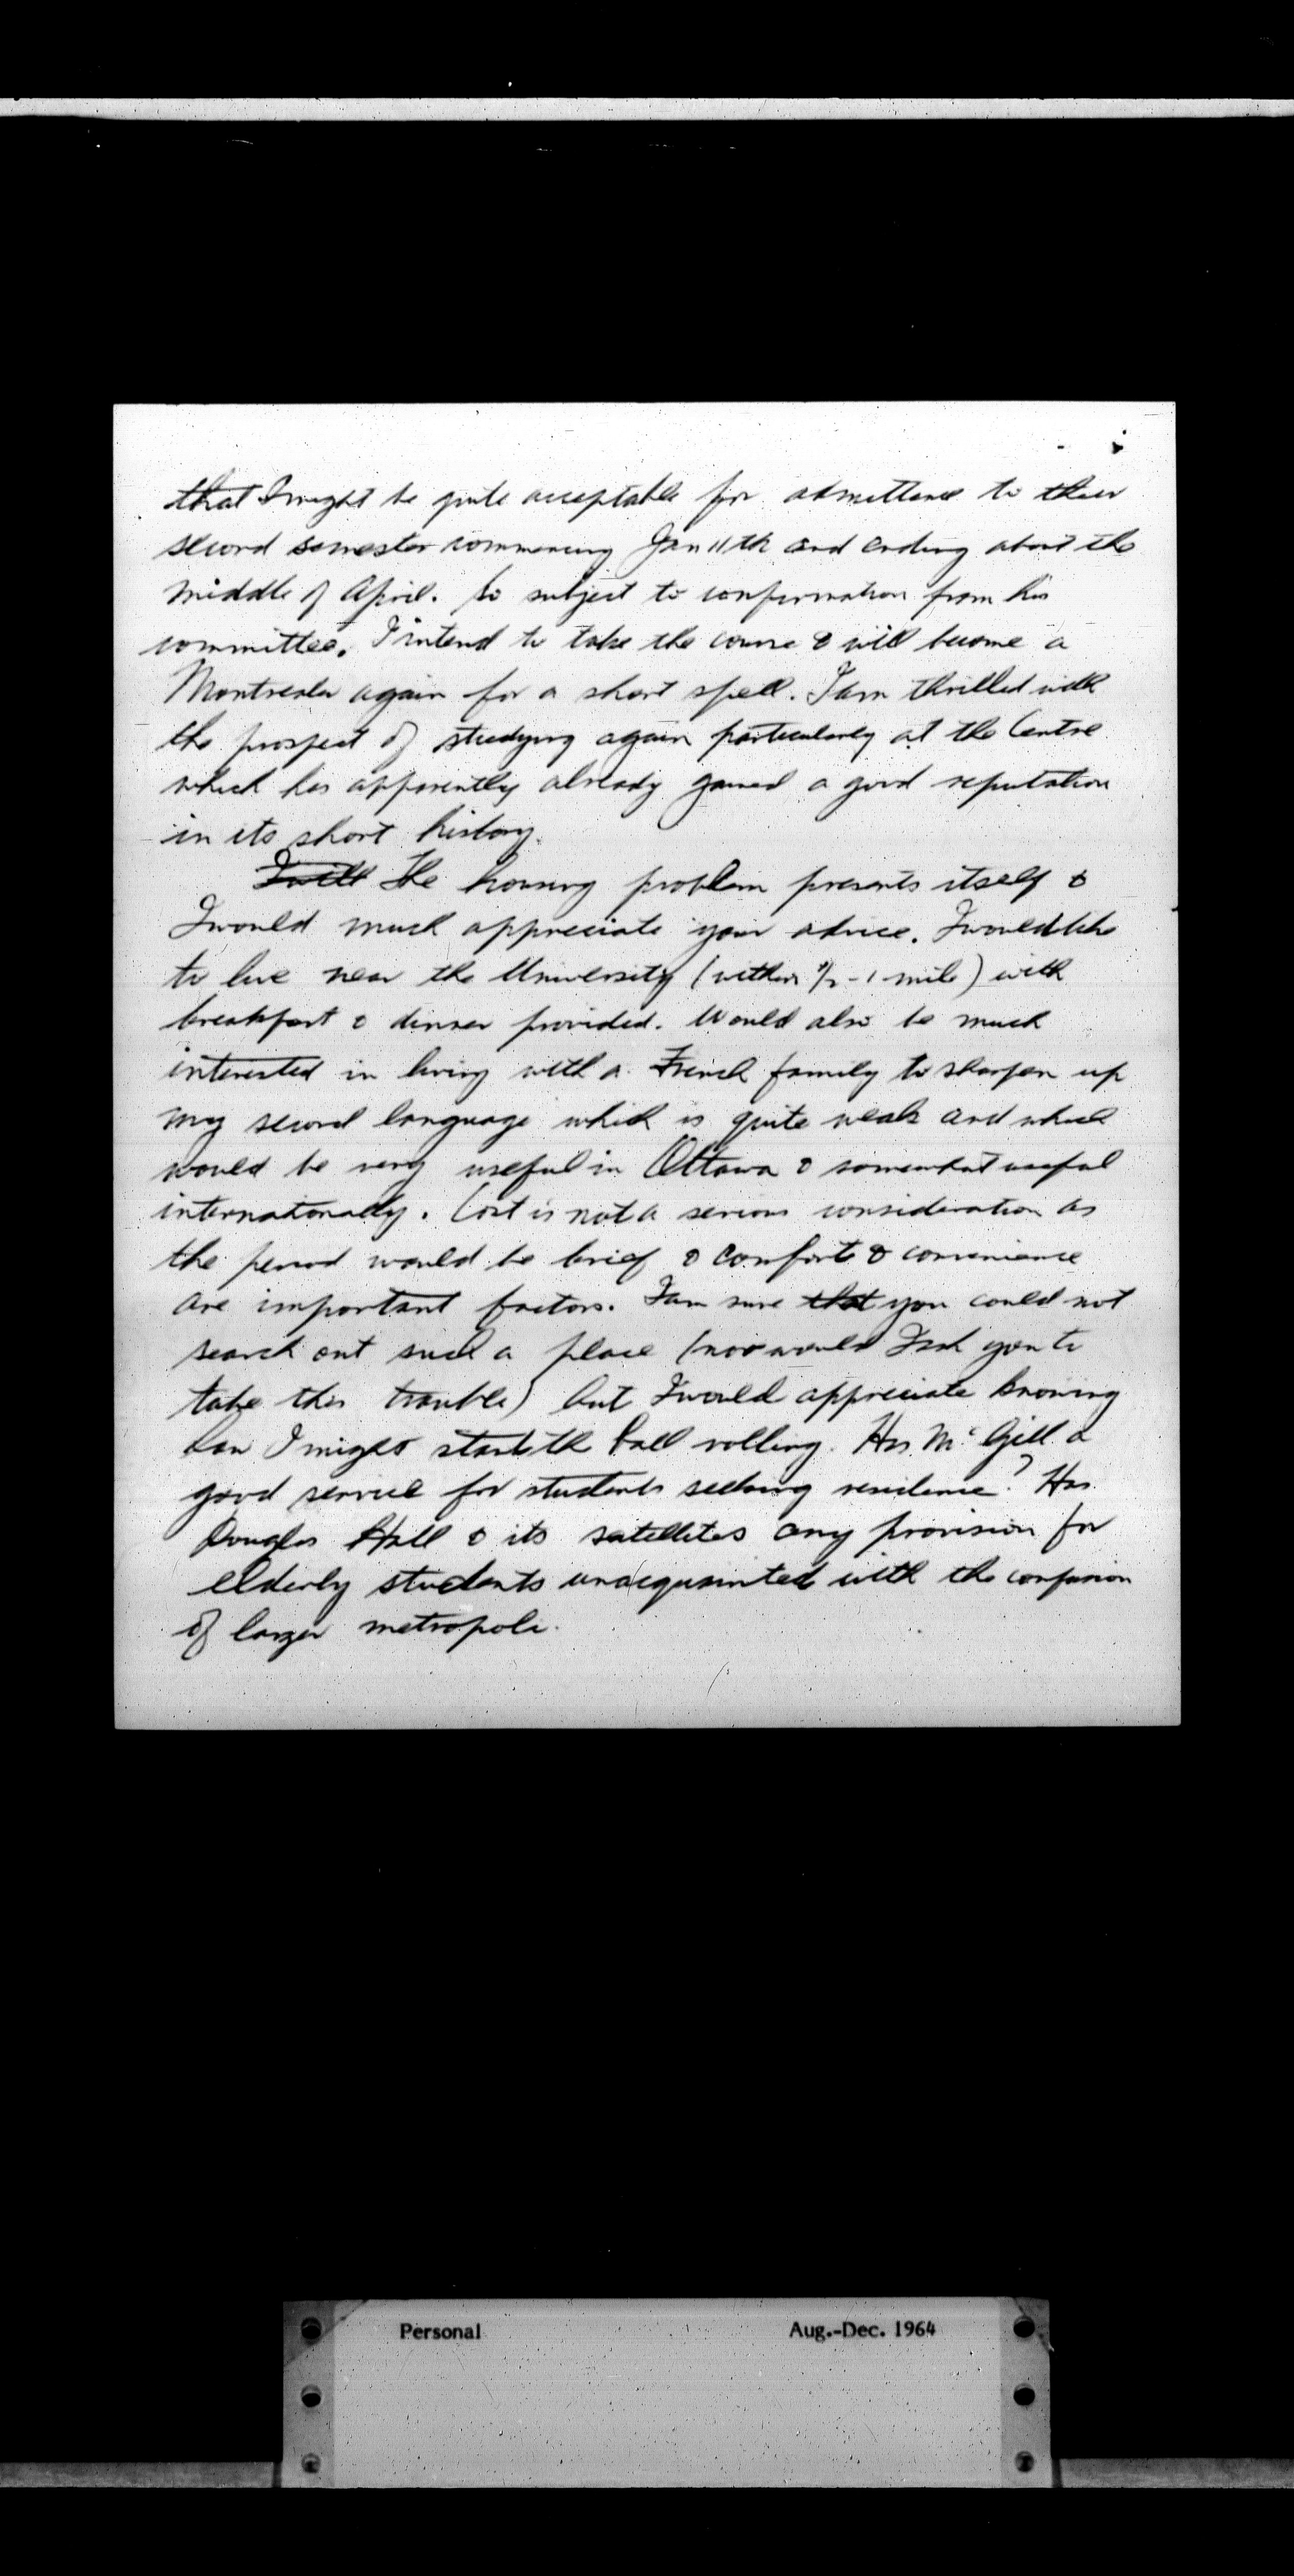 that I might be quite acceptable for admittance to their
second semester commencing Jan 11th and ending about the
middle of April. So subject to confirmation from his
committee, I intend to take the course & will become a
Montrealer again for a short spell. I am thrilled with
the prospect of studying again particularly at the Centre
which has apparently already gained a good reputation
in its short history.
I will The housing problem presents itself &
I would much appreciate your advice. I would like
to live near the University (within 1/2 - 1 mile) with
breakfast & dinner provided. Would also be much
interested in living with a French family to sharpen up
my second language which is quite weak and which
would be very useful in Ottawa & somewhat useful
internationally. Cost is not a serious consideration as
the period would be brief & comfort & convenience
are important factors. I am sure that you could not
search out such a place (nor would I ask you to
take this trouble) but I would appreciate knowing
how I might start the ball rolling. Has McGill a
good service for students seeking residence? Has
Douglas Hall & its satellites any provision for
elderly students unacquainted with the confusion
of larger metropoli.
Personal Aug.-Dec. 1964